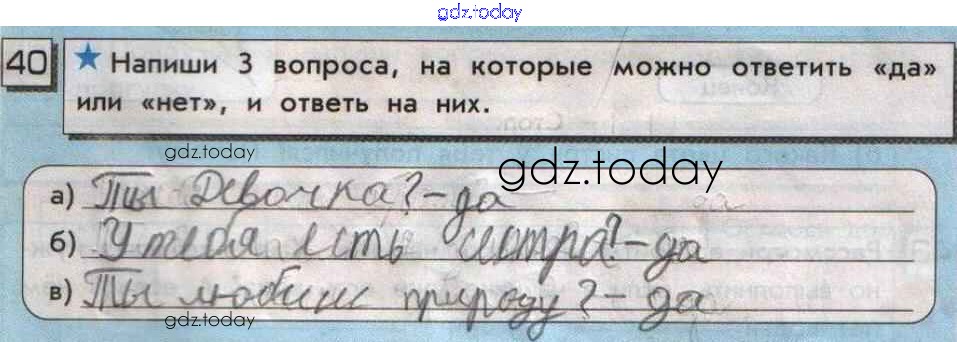 gdz.today
40 ★ Напиши 3 вопроса, на которые можно ответить «да»
или «нет», и ответь на них.
gdz.today
gdz.today
а) Ты девочка? – да
б) У тебя есть сестра? – да
в) Ты любишь природу? – да
gdz.today